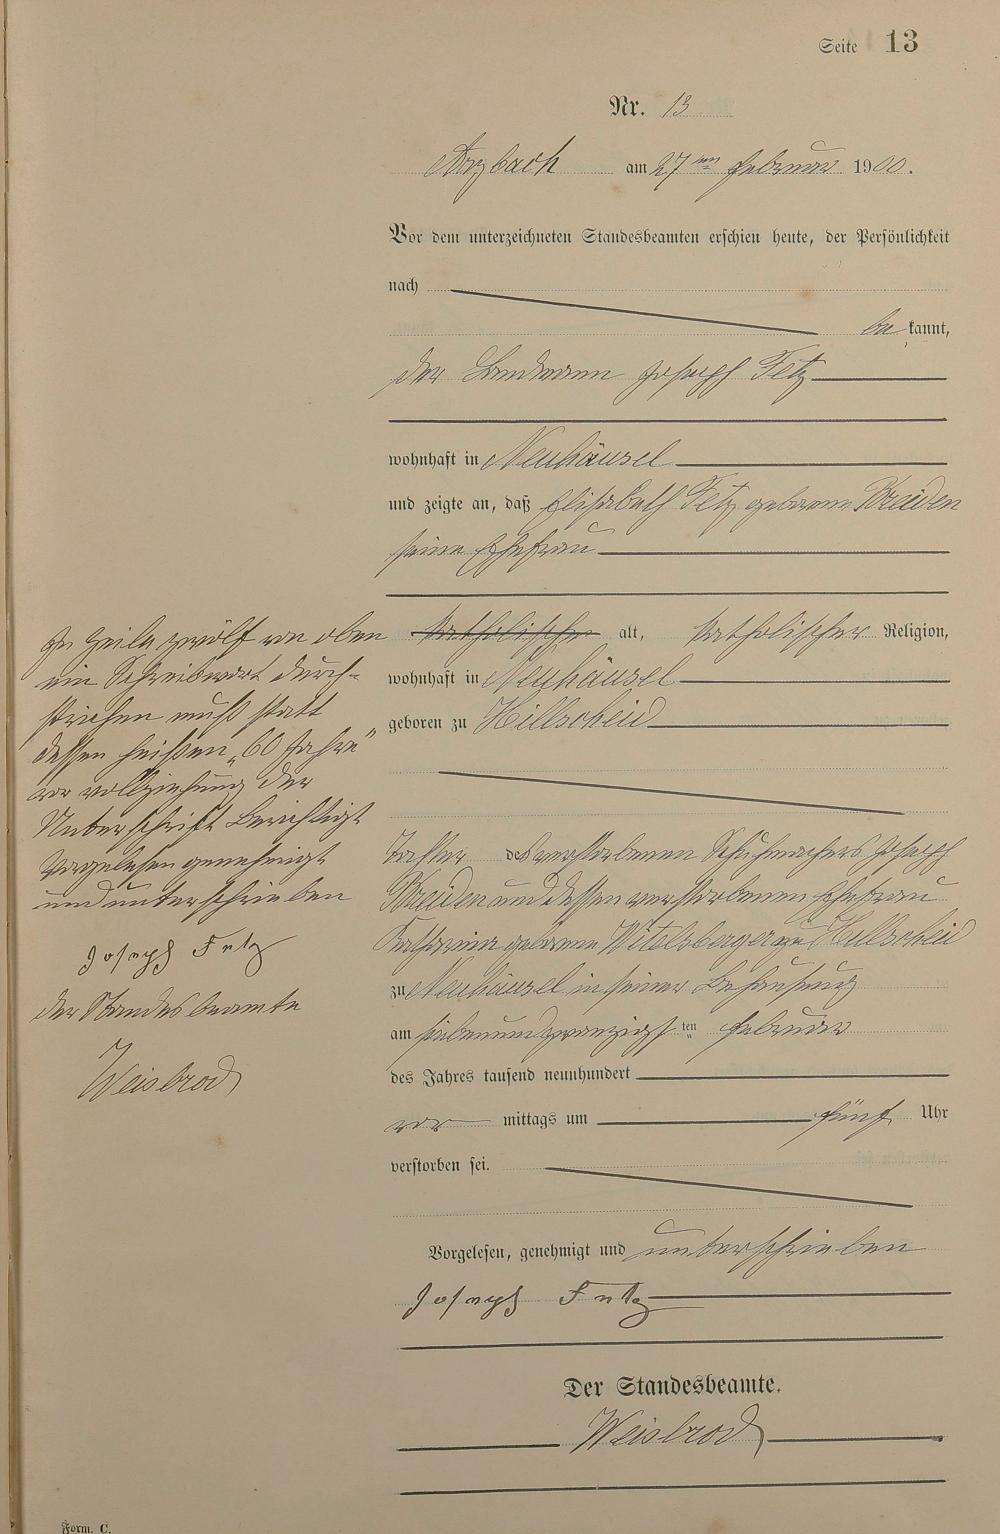 Seite 13
Nr. 13
Arzbach am 27ten Februar 1900.
Vor dem unterzeichneten Standesbeamten erschien heute, der Persönlichkeit
nach
be kannt,
der Landmann Joseph Fetz
wohnhaft in Neuhäusel
und zeigte an, daß Elisabeth Fetz geborene Breiden
seine Ehefrau
katholischer alt, katholischer Religion,
wohnhaft in Neuhäusel
geboren zu Hillscheid
Tochter des verstorbenen Schuhmachers Joseph
Breiden und dessen verstorbenen Ehefrau
Katharina geborene Witelsberger zu Hillscheid
zu Neuhäusel in seiner Behausung
am siebenundzwanzigsten Februar
des Jahres tausend neunhundert
vor mittags um fünf Uhr
verstorben sei.
Vorgelesen, genehmigt und unterschrieben
Joseph Fetz
Der Standesbeamte.
Weisbrod
Zu Zeile zwölf von oben
ein Schreibwort durch-
strichen muß statt
dessen heißen „60 Jahre"
vor vollziehung der
Unterschrift Berichtigt
Vorgelesen genehmigt
und unterschrieben
Joseph Fetz
der Standesbeamte
Weisbrod
Form. C.